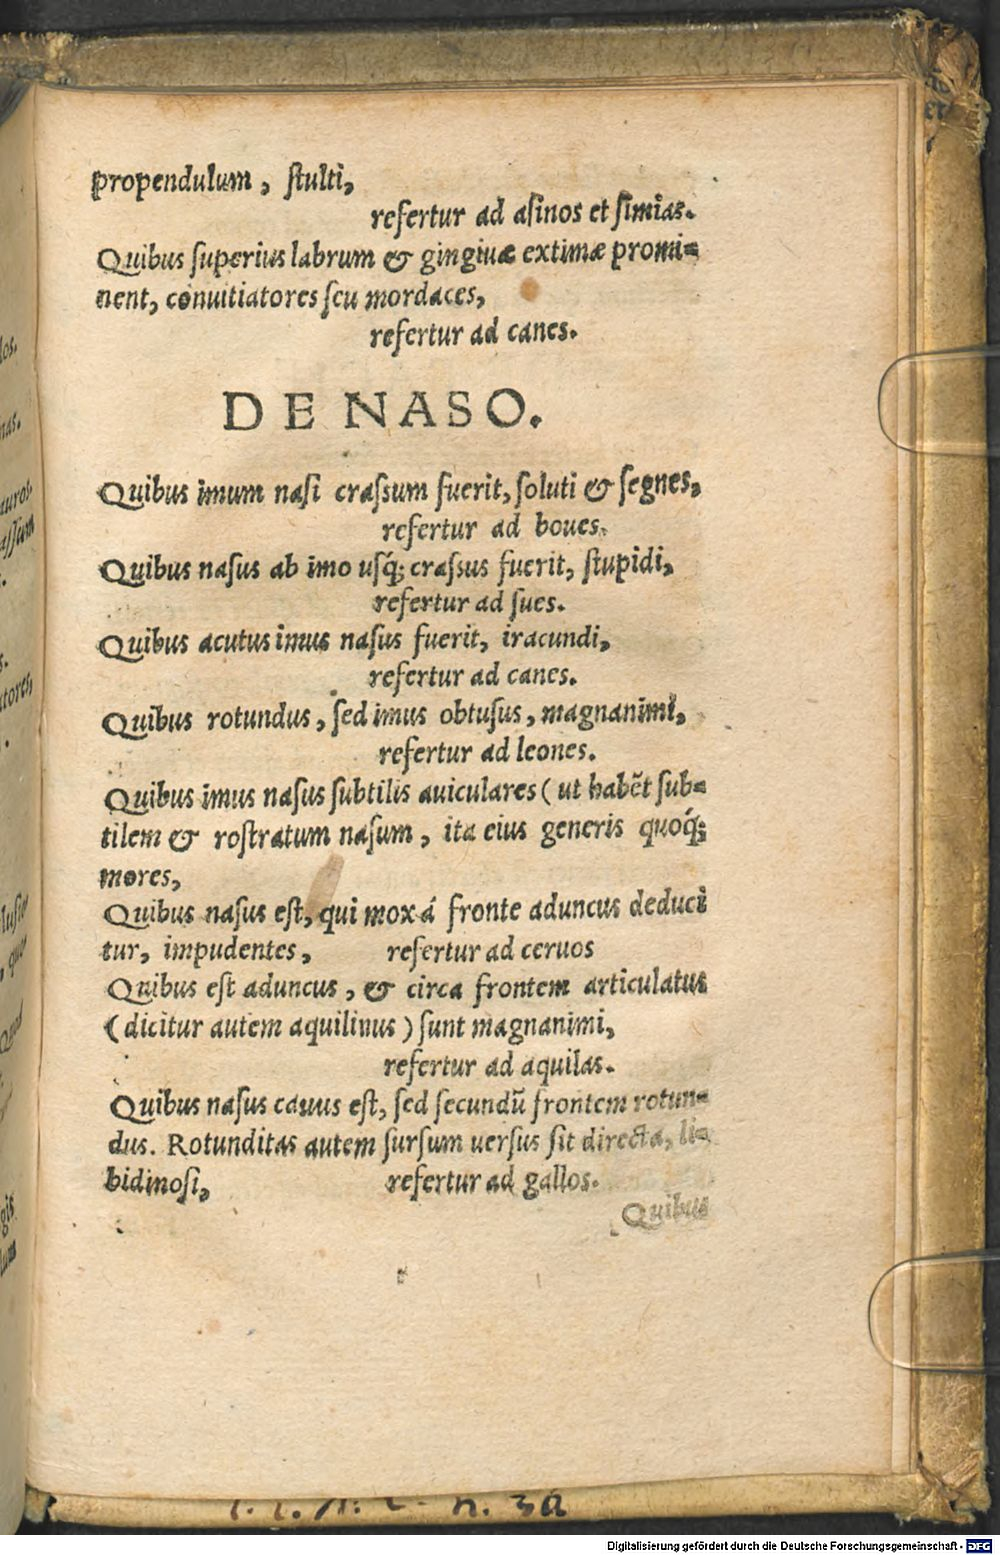 propendulum, ſtulti,
refertur ad aſinos et ſimias.
Quibus ſuperius labrum & gingiuæ extimæ promi=
nent, conuitiatores ſeu mordaces,
refertur ad canes.
DE NASO.
Quibus imum naſi craſsum fuerit, ſoluti & ſegnes,
refertur ad boues.
Quibus naſus ab imo uſq́; craſsus fuerit, ſtupidi,
refertur ad ſues.
Quibus acutus imus naſus fuerit, iracundi,
refertur ad canes.
Quibus rotundus, ſed imus obtuſus, magnanimi,
refertur ad leones.
Quibus imus naſus ſubtilis auiculares (ut habēt ſub=
tilem & roſtratum naſum, ita eius generis quoq́;
mores,
Quibus naſus eſt, qui mox á fronte aduncus deduci
tur, impudentes, refertur ad ceruos
Quibus eſt aduncus, & circa frontem articulatus
(dicitur autem aquilinus) ſunt magnanimi,
refertur ad aquilas.
Quibus naſus cauus eſt, ſed ſecundū frontem rotun=
dus. Rotunditas autem ſurſum uerſus ſit directa, li=
bidinoſi, refertur ad gallos.
Quibus
los.
nas.
auros
aſſum
tores
gis
lum
Digitalisierung gefördert durch die Deutsche Forschungsgemeinschaft - DFG